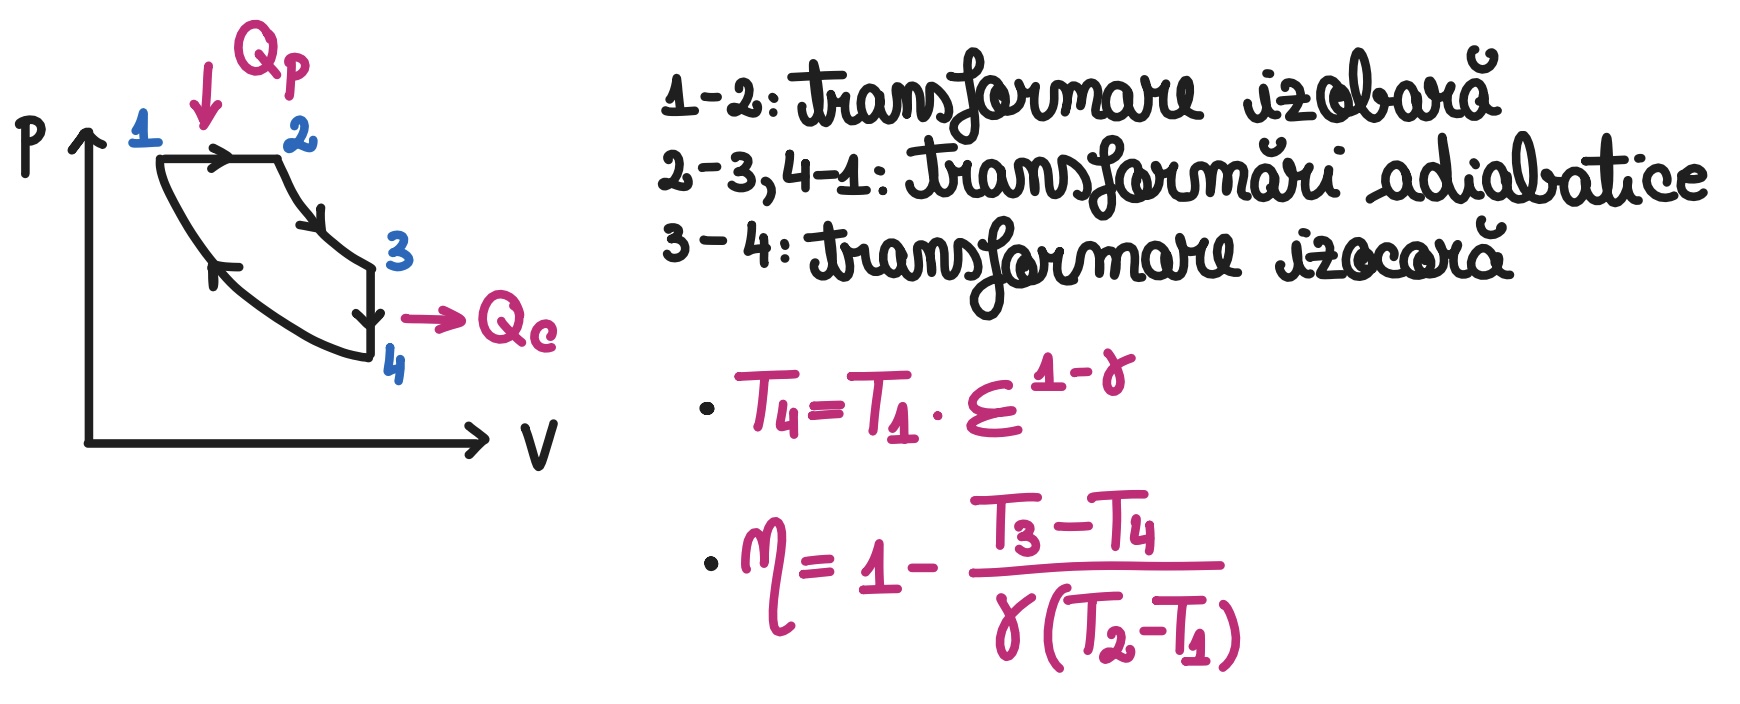 Qp
P
1
2
3
Qc
4
V
1-2: transformare izobară
2-3, 4-1: transformări adiabatice
3-4: transformare izocoră
• T₄ = T₁ · ε^(1-γ)
• η = 1 - (T₃ - T₄) / (γ(T₂ - T₁))